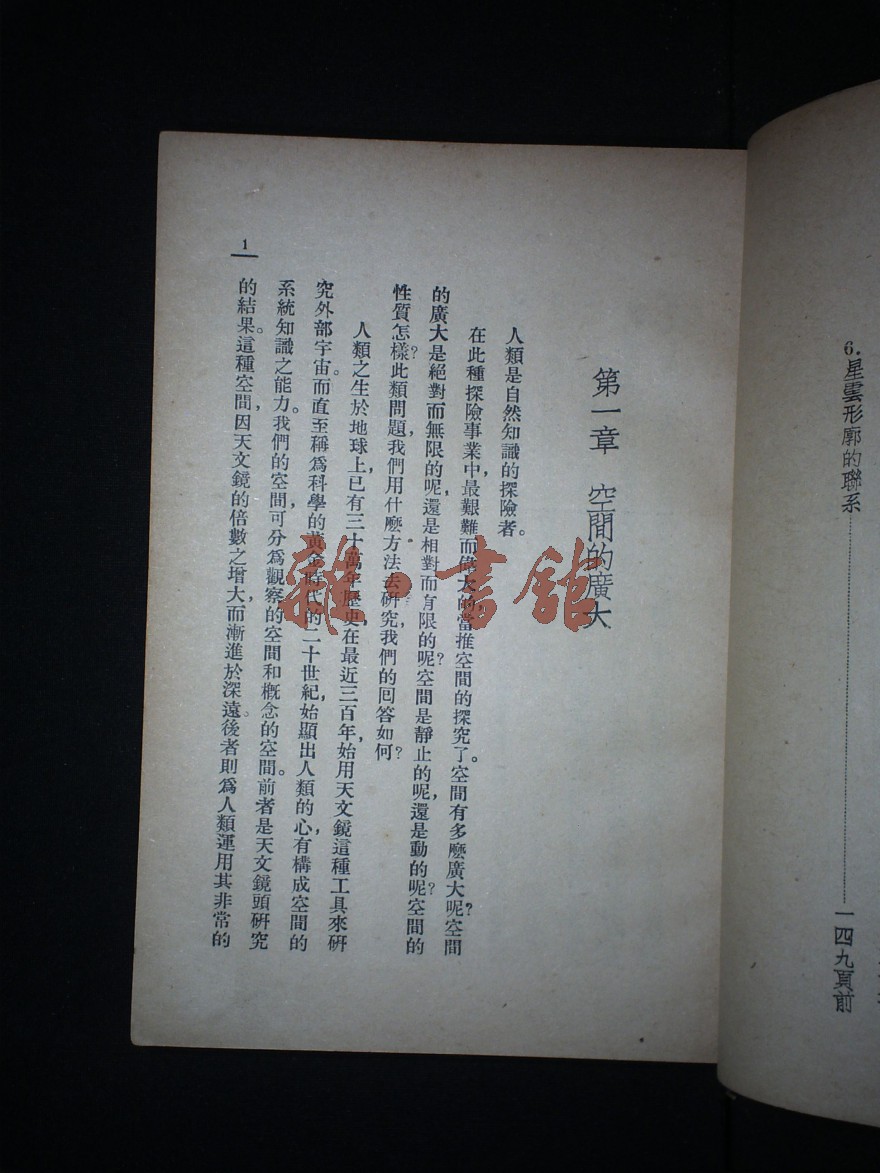 6.星雲形廓的聯系……一四九頁前
第一章 空間的廣大
人類是自然知識的探險者。
在此種探險事業中，最艱難而偉大的當推空間的探究了。空間有多麽廣大呢？空間
的廣大是絕對而無限的呢，還是相對而有限的呢？空間是靜止的呢，還是動的呢？空間的
性質怎樣？此類問題，我們用什麽方法去研究，我們的囘答如何？
人類之生於地球上，已有三十萬年歷史，在最近三百年，始用天文鏡這種工具來研
究外部宇宙。而直至稱爲科學的黃金時代的二十世紀，始顯出人類的心，有構成空間的
系統知識之能力。我們的空間可分爲觀察的空間和槪念的空間。前者是天文鏡頭研究
的結果。這種空間，因天文鏡的倍數之增大，而漸進於深遠。後者則爲人類運用其非常的
1
雜·書館